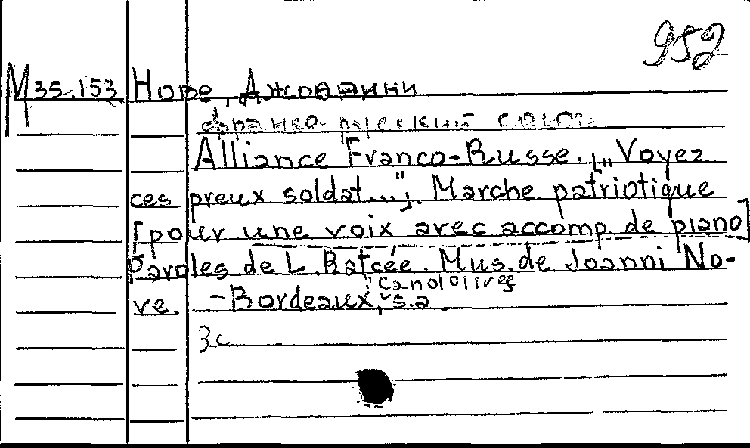 952
М 35.153 Норе, Джованни
Франко-русский союз.
Alliance Franco-Russe. [„Voyez
ces preux soldat..."]. Marche patriotique
[pour une voix avec accomp. de piano]
Paroles de L. Ratcée. Mus. de Joanni No-
ve. - Bordeaux, s.a
3с